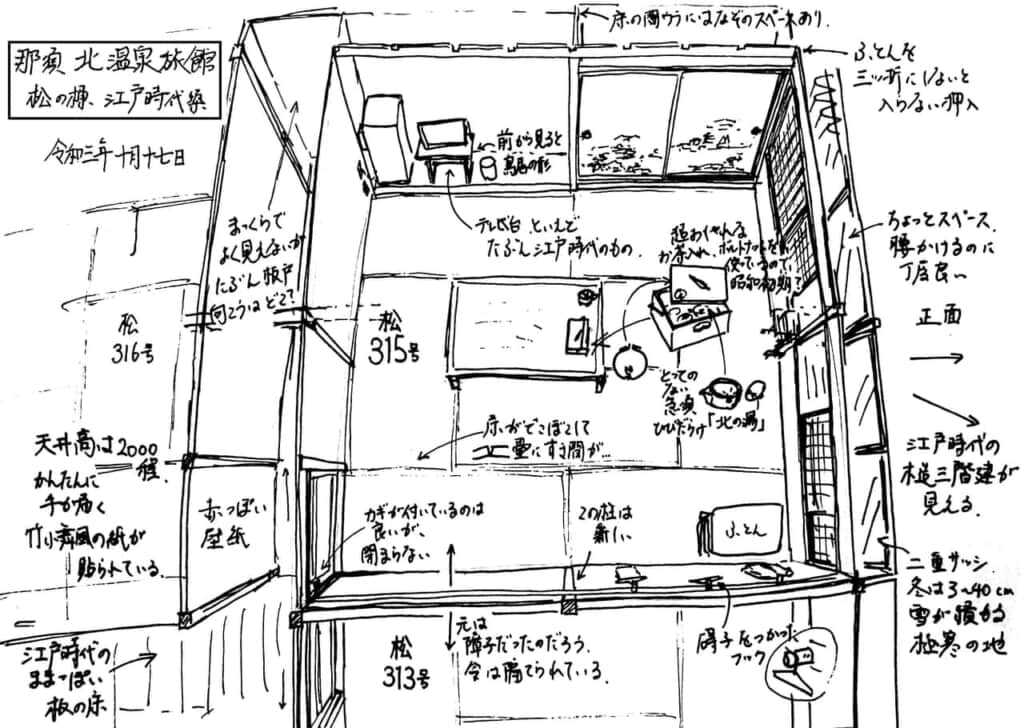 那須 北温泉旅館
松の棟、江戸時代築
令和三年十月十七日
床の間ウラにはなぞのスペースあり.
ふとんを
三ッ折にしないと
入らない押入
前から見ると
鳥居の形
テレビ台 といえど
たぶん江戸時代のもの.
まっくらで
よく見えないが
たぶん板戸
向こうはどこ?
超おしゃれな
お茶入れ、ボルトナットを
使っているので
昭和初期?
ちょっとスペース.
腰かけるのに
丁度良い
正面
松
316号
松
315号
とっての
ない
急須、
ひびだらけ
「北の湯」
江戸時代の
木造三階建が
見える.
天井高は2000
程.
かんたんに
手が届く
竹小舞風の紙が
貼られている.
赤っぽい
壁紙
床がでこぼこして
畳にすき間が…
カギが付いているのは
良いが、
閉まらない
この柱は
新しい
ふとん
二重サッシ.
冬は3~40cm
雪が積もる
極寒の地
江戸時代の
ままっぽい
板の床
松
313号
元は
障子だったのだろう.
今は隔てられている.
碍子をつかった
フック